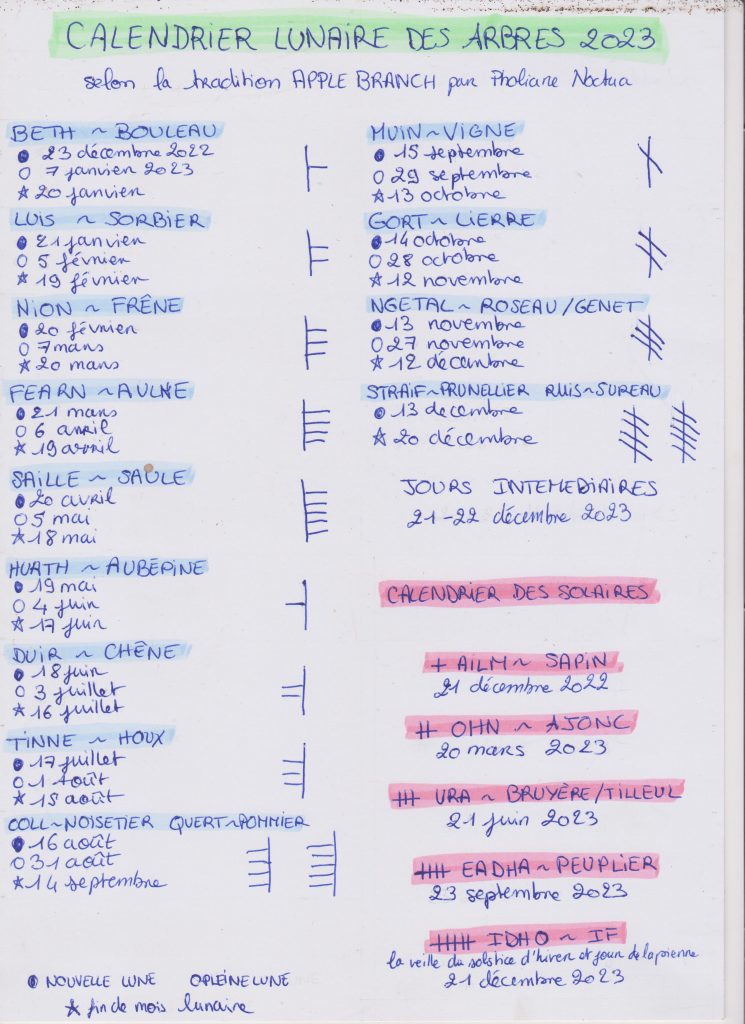 CALENDRIER LUNAIRE DES ARBRES 2023
selon la tradition APPLE BRANCH par Pholiane Noctua
BETH ~ BOULEAU
● 23 décembre 2022
○ 7 janvier 2023
★ 20 janvier
LUIS ~ SORBIER
● 21 janvier
○ 5 février
★ 19 février
NION ~ FRÊNE
● 20 février
○ 7 mars
★ 20 mars
FEARN ~ AULNE
● 21 mars
○ 6 avril
★ 19 avril
SAILLE ~ SAULE
● 20 avril
○ 5 mai
★ 18 mai
HUATH ~ AUBÉPINE
● 19 mai
○ 4 juin
★ 17 juin
DUIR ~ CHÊNE
● 18 juin
○ 3 juillet
★ 16 juillet
TINNE ~ HOUX
● 17 juillet
○ 1 août
★ 15 août
COLL ~ NOISETIER QUERT ~ POMMIER
● 16 août
○ 31 août
★ 14 septembre
● NOUVELLE LUNE ○ PLEINE LUNE
★ fin de mois lunaire
MUIN ~ VIGNE
● 15 septembre
○ 29 septembre
★ 13 octobre
GORT ~ LIERRE
● 14 octobre
○ 28 octobre
★ 12 novembre
NGETAL ~ ROSEAU/GENET
● 13 novembre
○ 27 novembre
★ 12 décembre
STRAIF ~ PRUNELLIER RUIS ~ SUREAU
● 13 decembre
★ 20 décembre
JOURS INTEMEDIAIRES
21-22 décembre 2023
CALENDRIER DES SOLAIRES
AILM ~ SAPIN
21 décembre 2022
OHN ~ AJONC
20 mars 2023
URA ~ BRUYÈRE/TILLEUL
21 juin 2023
EADHA ~ PEUPLIER
23 septembre 2023
IDHO ~ IF
la veille du solstice d'hiver et jour de la
21 décembre 2023